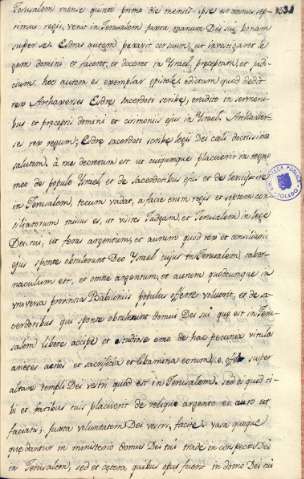 Jerusalem mense quinto prima die mensis ipse est annus sep
timus regis, venit in Jerusalem juxta manum Dei sui bonam
super se Esdras autem paravit cor suum, ut investigaret le
gem domini et faceret, et doceret in Ysrael preceptum, et judi
cium. hec autem est exemplar epistole edictum quod dedit
rex Arthaxerses Esdre sacerdoti scribe, erudito in sermoni
bus et preceptis domini et ceremoniis ejus in Ysrael, Arthaxer
ses rex regum; Esdre sacerdoti scribe legis Dei celi doctissimo
salutem, à me decretum est ut cuiqumque placuerit in regno
meo de populo Ysrael, et de sacerdotibus ejus et de Levitis ire
in Jerusalem, tecum vadat, a facie enim regis et septem con
siliatorum missus es, ut visites Judæam, et Jerusalem in lege
Dei tui, et feras argentum, et aurum quod rex et consiliarii
ejus sponte obtulerunt Deo Ysrael cujus in Jerusalem taber
naculum est, et omne argentum, et aurum quodcumque in
universa provincia Babilonis populus offerre voluerit, et de sa
cerdotibus qui sponte obtulerint domui Dei sui que est in Jeru
salem libere accipe et studiose eme de hac pecunia vitulos
arietes agnos et sacrificia et libamina eorum, et offer super
altare templi Dei vestri quod est in Jerusalem. sed et quid ti
bi et fratribus tuis placuerit de reliquo argento et auro ut
faciatis, juxta voluntatem Dei vestri, facite, vasa quoque
que dantur in ministerio domus Dei tui trade in conspectu Dei
in Jerusalem, sed et cetera quibus opus fuerit in domo Dei tui